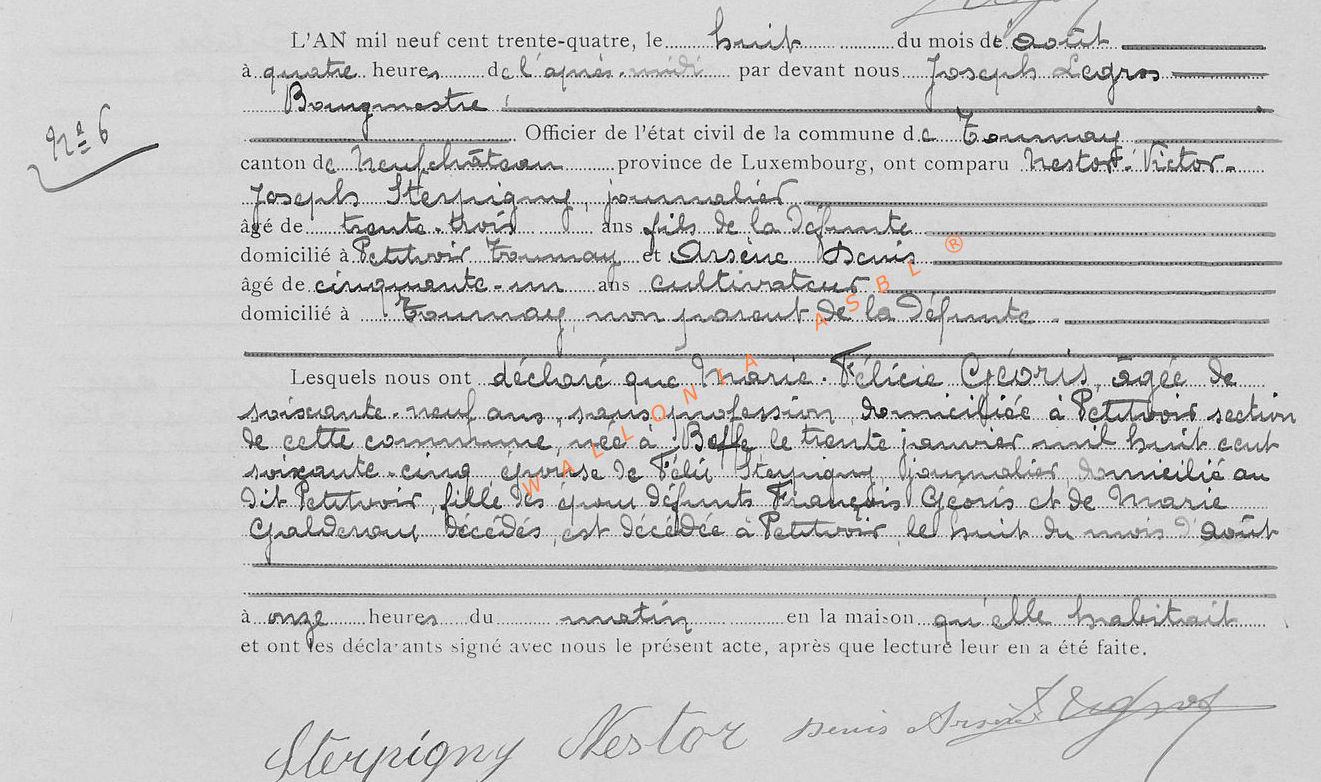 L'AN mil neuf cent trente-quatre, le huit du mois de août
à quatre heures de l'après-midi par devant nous Joseph Legros
Bourgmestre
Officier de l'état civil de la commune de Tournay
Nº 6
canton de Neufchâteau province de Luxembourg, ont comparu Nestor-Victor-
Joseph Sterpigny, journalier
âgé de trente-trois ans fils de la défunte
domicilié à Petitvoir Tournay et Arsène Denis
âgé de cinquante-un ans cultivateur
domicilié à Tournay, non parent de la défunte
Lesquels nous ont déclaré que Marie-Félicie Géoris, âgée de
soixante-neuf ans, sans profession, domiciliée à Petitvoir section
de cette commune, née à Beffe le trente janvier mil huit cent
soixante-cinq épouse de Félix Sterpigny journalier domicilié au
dit Petitvoir, fille des époux défunts François Géoris et de Marie
décédés, est décédée à Petitvoir, le huit du mois d'août
à onze heures du matin en la maison qu'elle habitait
et ont les déclarants signé avec nous le présent acte, après que lecture leur en a été faite.
Sterpigny Nestor Denis Arsène Legros
WALLONIA ASBL ®